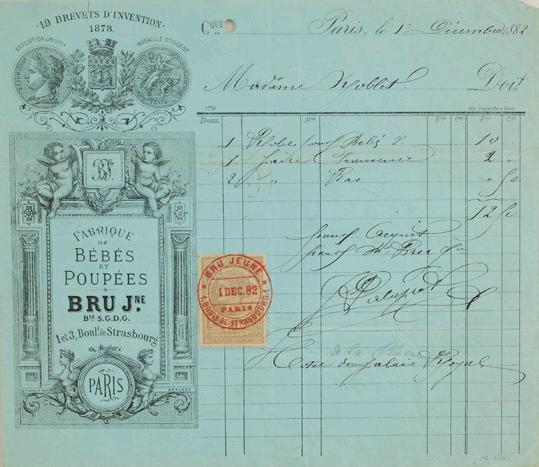 19 BREVETS D'INVENTION
1878.
EXPOSITION UNIVlle
MÉDAILLE D'ARGENT
FABRIQUE
DE
BÉBÉS
ET
POUPÉES
BRU JNE
Bté S.G.D.G.
1 et 3, Boul.d de Strasbourg
PARIS
CQUE
Paris, le 1r Décembre 1882
Madame Noblet Doit
Douz.
1 Robe pour Bébé 2 10 "
1 paire 2 "
2 " Bas " 50
12 50
pour acquit
BRU JEUNE
1 DEC. 82
PARIS
1, BOULD DE STRASBOURG
Palais Royal